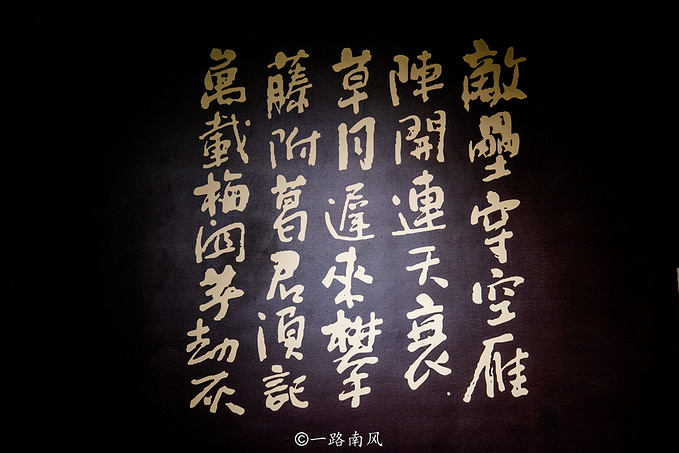 敵壘穿空雁
陣開連天衰
草月遲來攀
藤附葛君須記
萬載梅關著劫灰
©一路南风